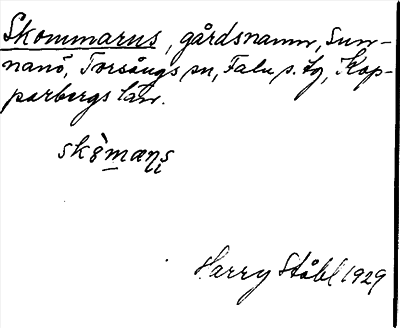 Skommarus, gårdsnamn, Sun-
nanö, Torsångs sn, Falu s. tg, Kop-
parbergs län.
Harry Ståhl 1929